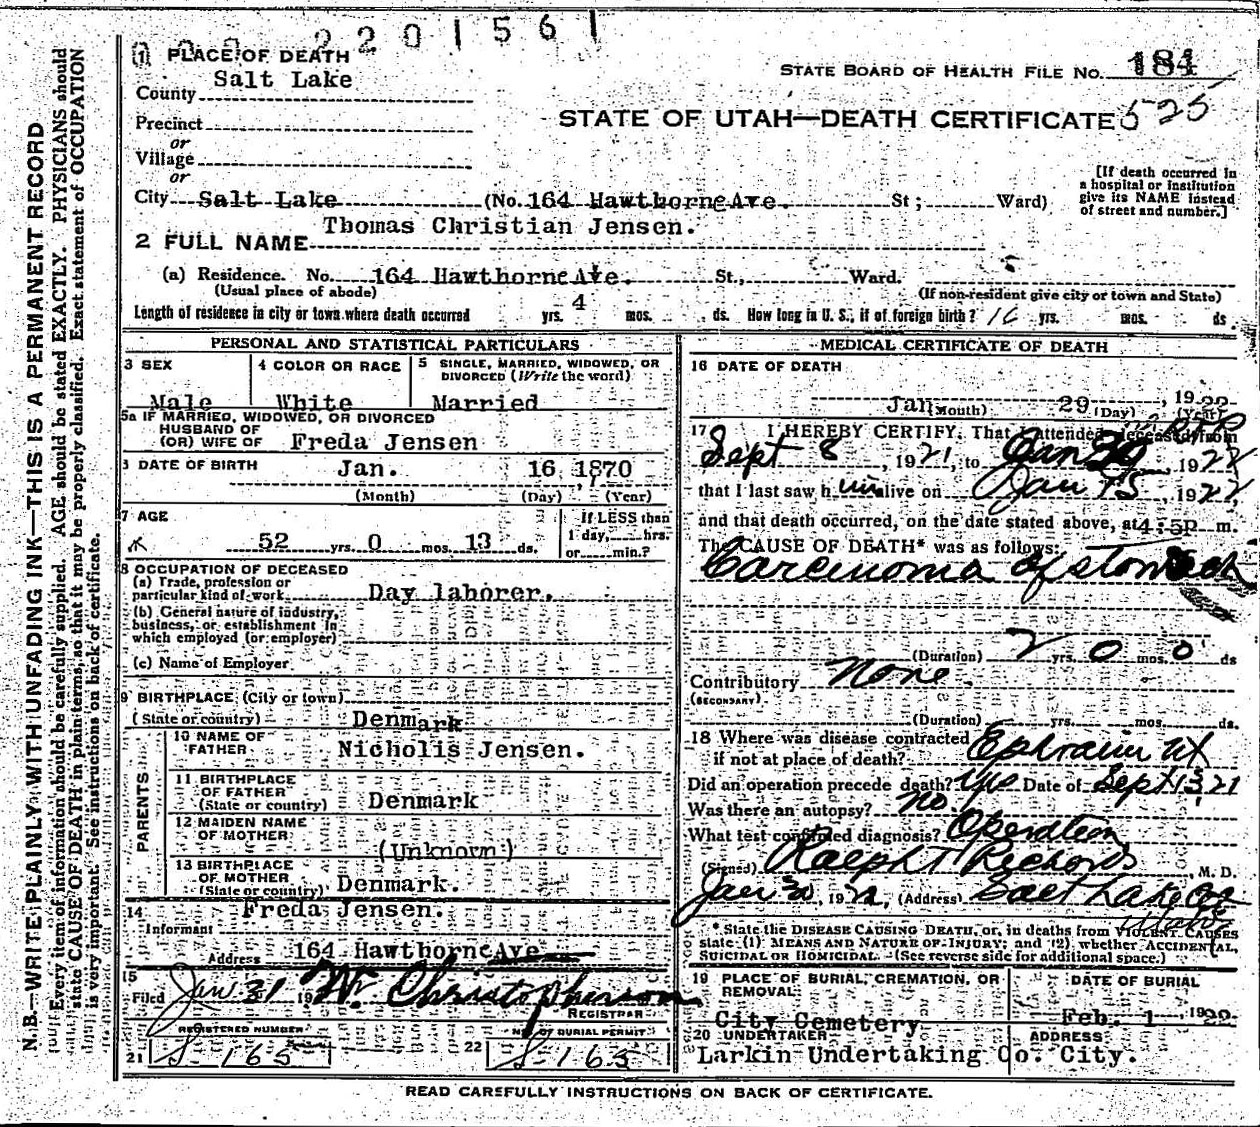 220156
(1) PLACE OF DEATH
County Salt Lake
STATE BOARD OF HEALTH FILE No. 184
525
Precinct
or
Village
or
STATE OF UTAH—DEATH CERTIFICATE
City Salt Lake (No. 164 Hawthorne Ave. St; Ward)
[If death occurred in a hospital or institution give its NAME instead of street and number.]
2 FULL NAME Thomas Christian Jensen.
(a) Residence. No. 164 Hawthorne Ave. St., Ward.
(Usual place of abode) (If non-resident give city or town and State)
Length of residence in city or town where death occurred yrs. 4 mos. ds. How long in U. S., if of foreign birth? 16 yrs. mos. ds
PERSONAL AND STATISTICAL PARTICULARS
3 SEX Male
4 COLOR OR RACE White
5 SINGLE, MARRIED, WIDOWED, OR DIVORCED (Write the word) Married
5a IF MARRIED, WIDOWED, OR DIVORCED
HUSBAND OF
(OR) WIFE OF Freda Jensen
DATE OF BIRTH Jan. 16 1870
(Month) (Day) (Year)
7 AGE 52 yrs. 0 mos. 13 ds.
If LESS than 1 day, hrs. or min.?
8 OCCUPATION OF DECEASED
(a) Trade, profession or
particular kind of work Day laborer.
(b) General nature of industry,
business, or establishment in
which employed (or employer)
(c) Name of Employer
9 BIRTHPLACE (City or town)
(State or country) Denmark
PARENTS
10 NAME OF
FATHER Nicholis Jensen.
11 BIRTHPLACE
OF FATHER
(State or country) Denmark
12 MAIDEN NAME
OF MOTHER
(Unknown)
13 BIRTHPLACE
OF MOTHER
(State or country) Denmark.
14 Freda Jensen.
Informant
Address 164 Hawthorne Ave
15
Filed Jan 31 19 W Christopherson
REGISTRAR
REGISTERED NUMBER
NO. OF BURIAL PERMIT
21 S-165 22 S-165
MEDICAL CERTIFICATE OF DEATH
16 DATE OF DEATH
Jan 29, 1922
(Month) (Day) (Year)
17 I HEREBY CERTIFY, That I attended deceased from
Sept 8, 1921, to Jan 1922
that I last saw h im alive on Jan 15, 1922,
and that death occurred, on the date stated above, at 4:5p m.
The CAUSE OF DEATH* was as follows:
Carcinoma of stomach
(Duration) 2 yrs. 0 mos. 0 ds
Contributory None.
(SECONDARY)
(Duration) yrs. mos. ds.
18 Where was disease contracted
if not at place of death? Ephraim Ut
Did an operation precede death? Yes Date of Sept 13, 21
Was there an autopsy? No.
What test confirmed diagnosis? Operation
(Signed) Ralph T Richards, M. D.
Jan 30, 1922, (Address) Salt Lake City
* State the DISEASE CAUSING DEATH, or, in deaths from VIOLENT CAUSES
state (1) MEANS AND NATURE OF INJURY; and (2) whether ACCIDENTAL,
SUICIDAL OR HOMICIDAL. (See reverse side for additional space.)
19 PLACE OF BURIAL, CREMATION, OR
REMOVAL:
City Cemetery
DATE OF BURIAL
Feb. 1 1922
20 UNDERTAKER ADDRESS
Larkin Undertaking Co. City.
READ CAREFULLY INSTRUCTIONS ON BACK OF CERTIFICATE.
N.B.—WRITE PLAINLY WITH UNFADING INK—THIS IS A PERMANENT RECORD
Every item of information should be carefully supplied. AGE should be stated EXACTLY. PHYSICIANS should
state CAUSE OF DEATH in plain terms, so that it may be properly classified. Exact statement of OCCUPATION
is very important. See instructions on back of certificate.